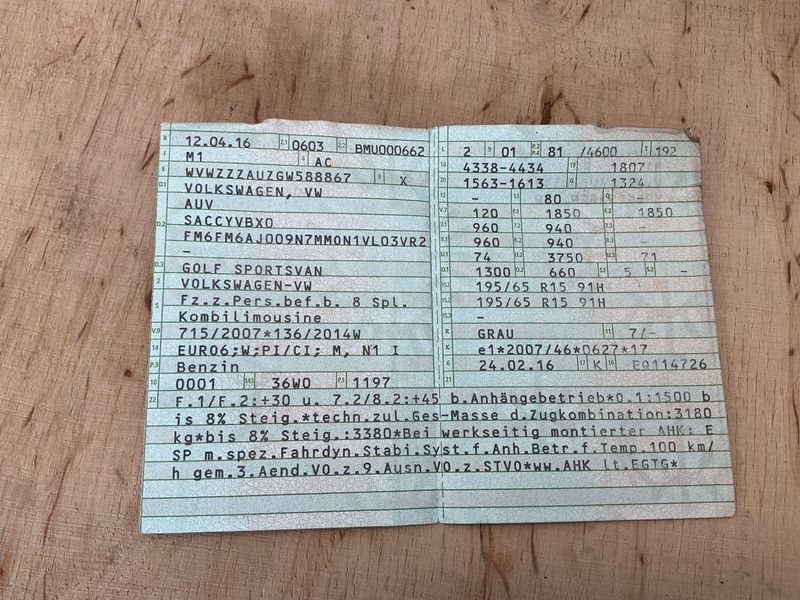 B 12.04.16 2.1 0603 2.2 BMU000662
J M1 4 AC
E WVWZZZAUZGW588867 3 X
D.1 VOLKSWAGEN, VW
AUV
D.2 SACCYVBX0
FM6FM6AJ009N7MMON1VL03VR2
-
D.3 GOLF SPORTSVAN
2 VOLKSWAGEN-VW
5 Fz.z.Pers.bef.b. 8 Spl.
Kombilimousine
V.9 715/2007*136/2014W
14 EURO6;W;PI/CI; M, N1 I
P.3 Benzin
10 0001 14.1 36W0 P.1 1197
L 2 9 01 P.2 P.4 81 /4600 T 192
18 4338-4434 19 1807
20 1563-1613 G 1324
12 - 13 80 Q -
V.7 120 F.1 1850 F.2 1850
7.1 960 7.2 940 7.3 -
8.1 960 8.2 940 8.3 -
U.1 74 U.2 3750 U.3 71
O.1 1300 O.2 660 S.1 5 S.2 -
15.1 195/65 R15 91H
15.2 195/65 R15 91H
15.3 -
R GRAU 11 7/-
K e1*2007/46*0627*17
6 24.02.16 17 K 16 EQ114726
21
22 F.1/F.2:+30 u. 7.2/8.2:+45 b.Anhängebetrieb*O.1:1500 b
is 8% Steig.*techn.zul.Ges-Masse d.Zugkombination:3180
kg*bis 8% Steig.:3380*Bei werkseitig montierter AHK: E
SP m.spez.Fahrdyn.Stabi.Syst.f.Anh.Betr.f.Temp.100 km/
h gem.3.Aend.VO.z.9.Ausn.VO.z.STVO*ww.AHK lt.EGTG*